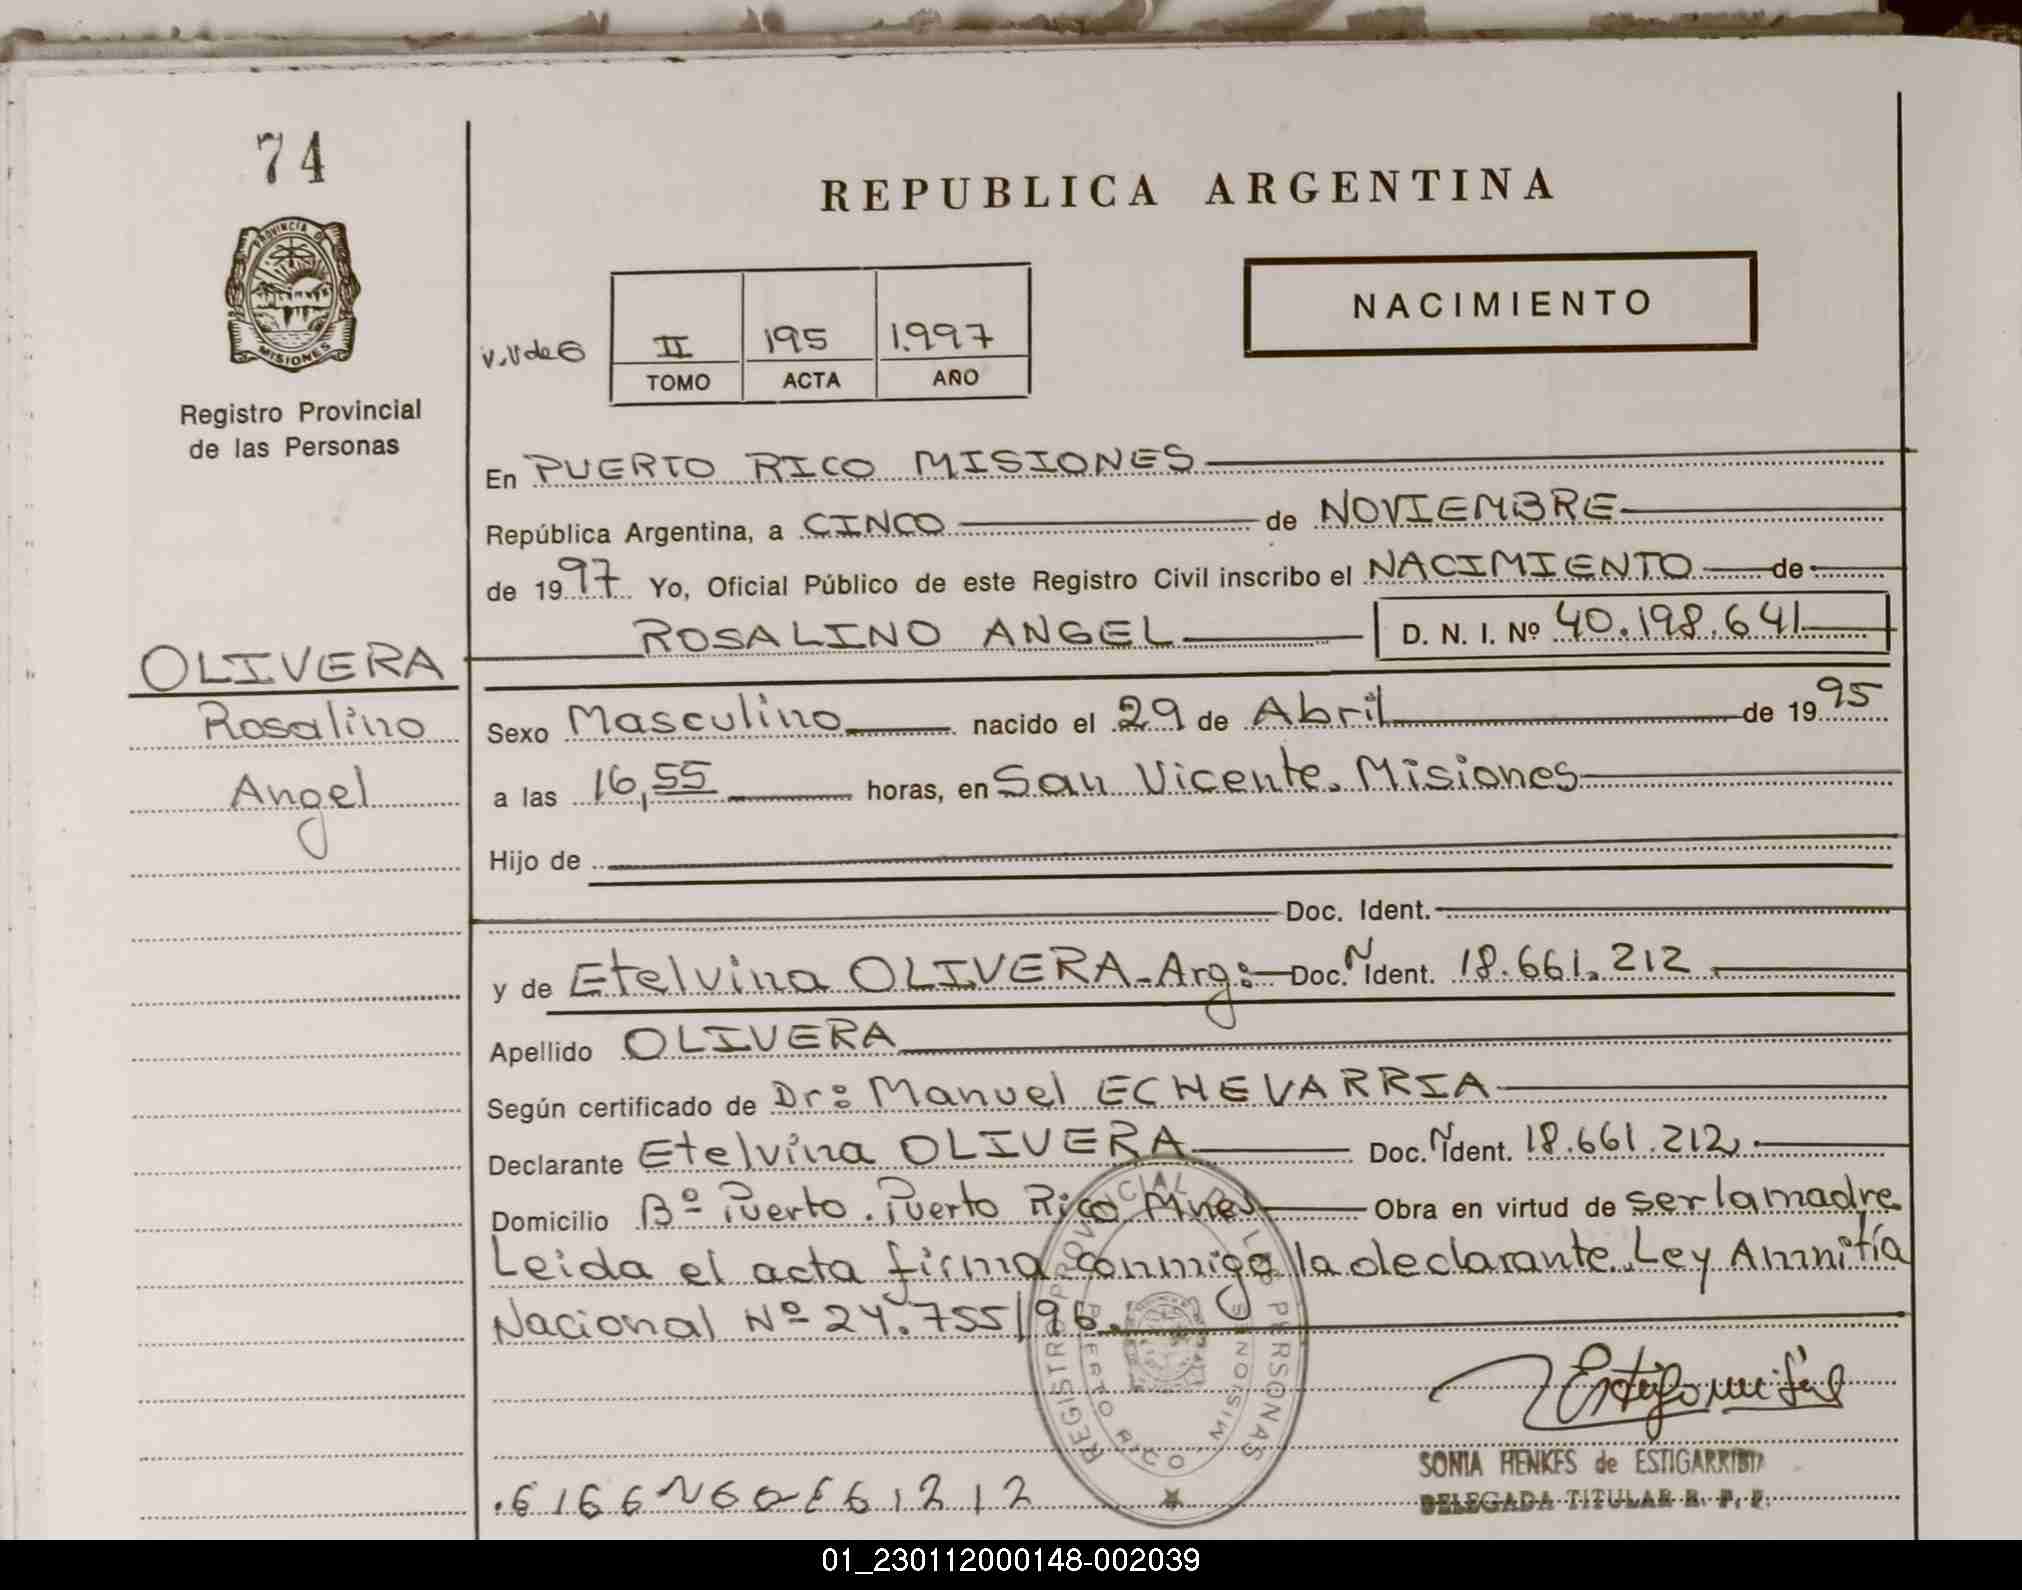 74
PROVINCIA DE
MISIONES
Registro Provincial
de las Personas
REPUBLICA ARGENTINA
NACIMIENTO
II 195 1.997
TOMO ACTA AÑO
En PUERTO RICO MISIONES
República Argentina, a CINCO de NOVIEMBRE
de 1997 Yo, Oficial Público de este Registro Civil inscribo el NACIMIENTO de
ROSALINO ANGEL D. N. I. Nº 40.198.641
OLIVERA
Rosalino
Angel
Sexo Masculino nacido el 29 de Abril de 1995
a las 16,55 horas, en San Vicente. Misiones
Hijo de
Doc. Ident.
y de Etelvina OLIVERA-Arg: Doc. N Ident. 18.661.212
Apellido OLIVERA
Según certificado de Dr: Manuel ECHEVARRIA
Declarante Etelvina OLIVERA Doc. N Ident. 18.661.212
Domicilio Bº Puerto. Puerto Rico Mnes Obra en virtud de ser la madre
Leida el acta firma conmigo la declarante. Ley Amnitía
Nacional Nº 24.755/96.
REGISTRO PROVINCIAL DE LAS PERSONAS
PUERTO RICO MISIONES
SONIA HENKES de ESTIGARRIBIA
DELEGADA TITULAR R. P. P.
01_230112000148-002039